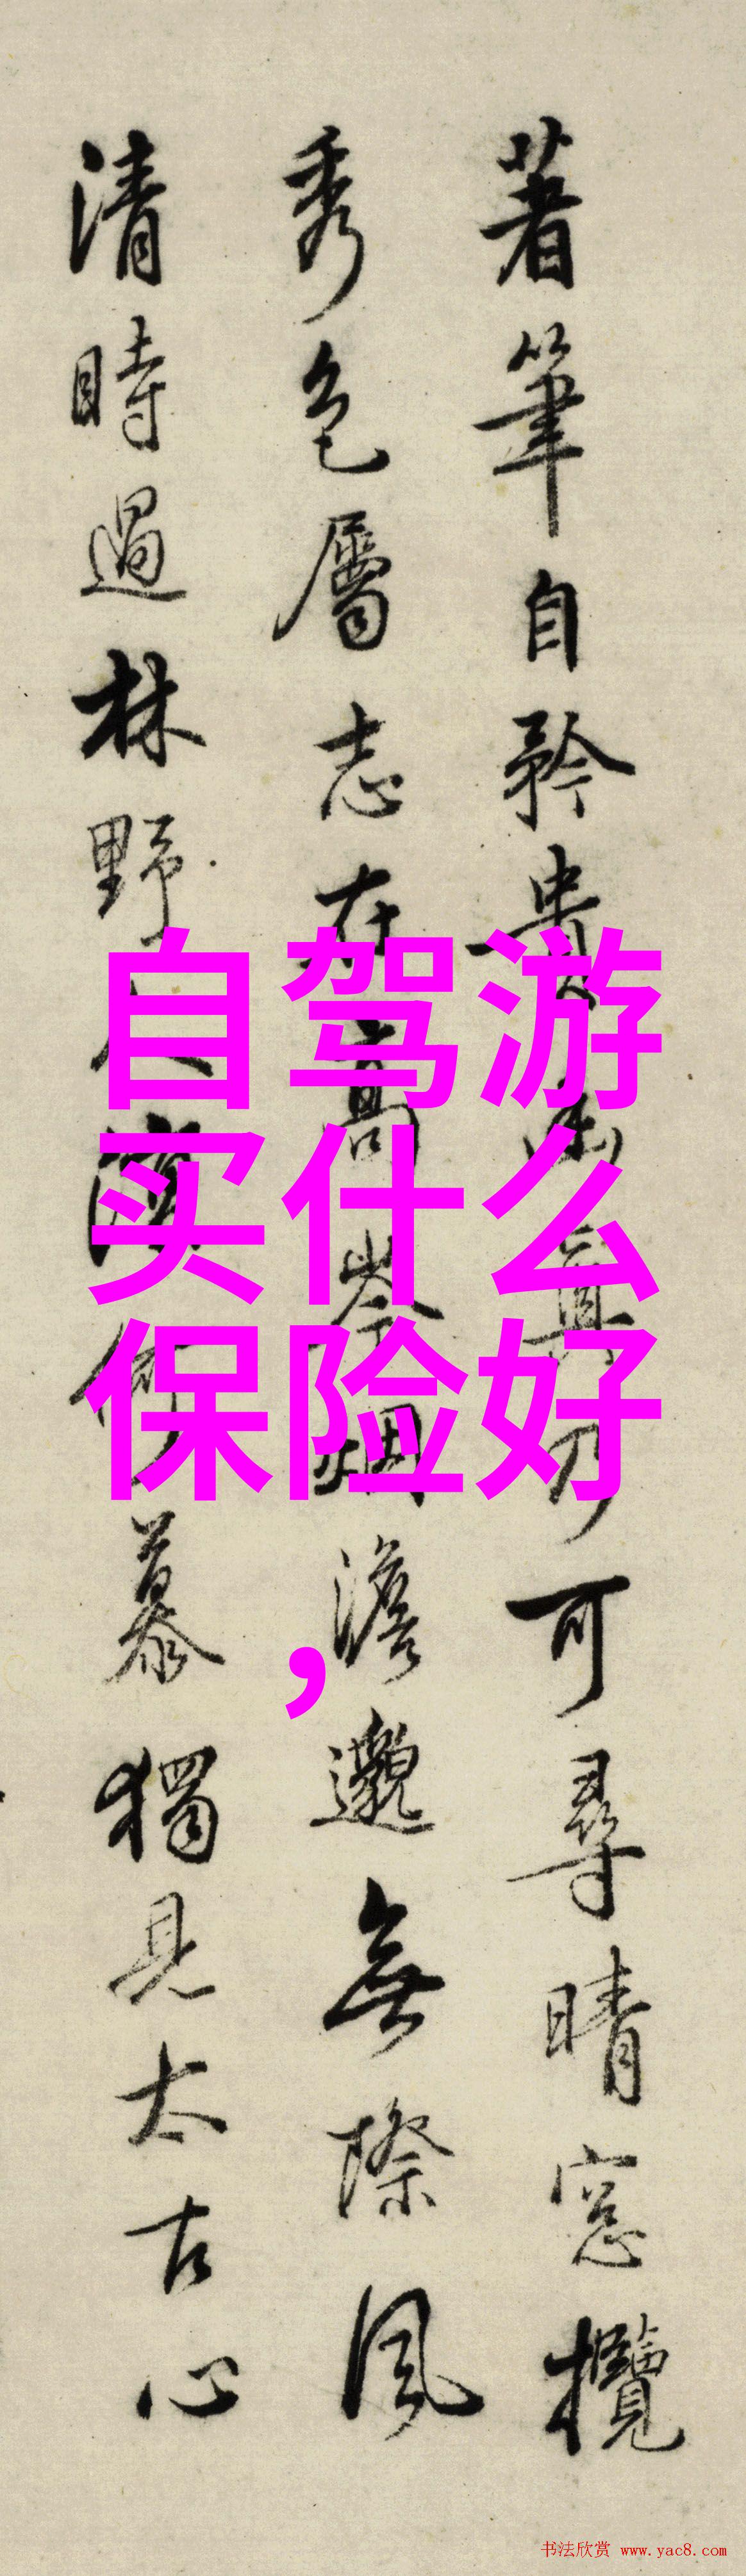 著筆自矜貴
可尋晴窓攬
秀色屬志在高岑烟澹邈無際風
清時過林野
慕獨見太古心
自驾游
买什么
保险好
，
书法欣赏 www.yac8.com